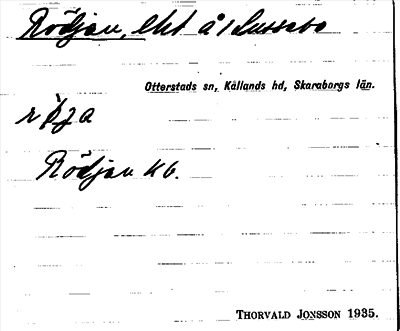 Rödjan, lht å 1 Lussebo
Otterstads sn, Kållands hd, Skaraborgs län.
Rödjan kb.
THORVALD JONSSON 1935.